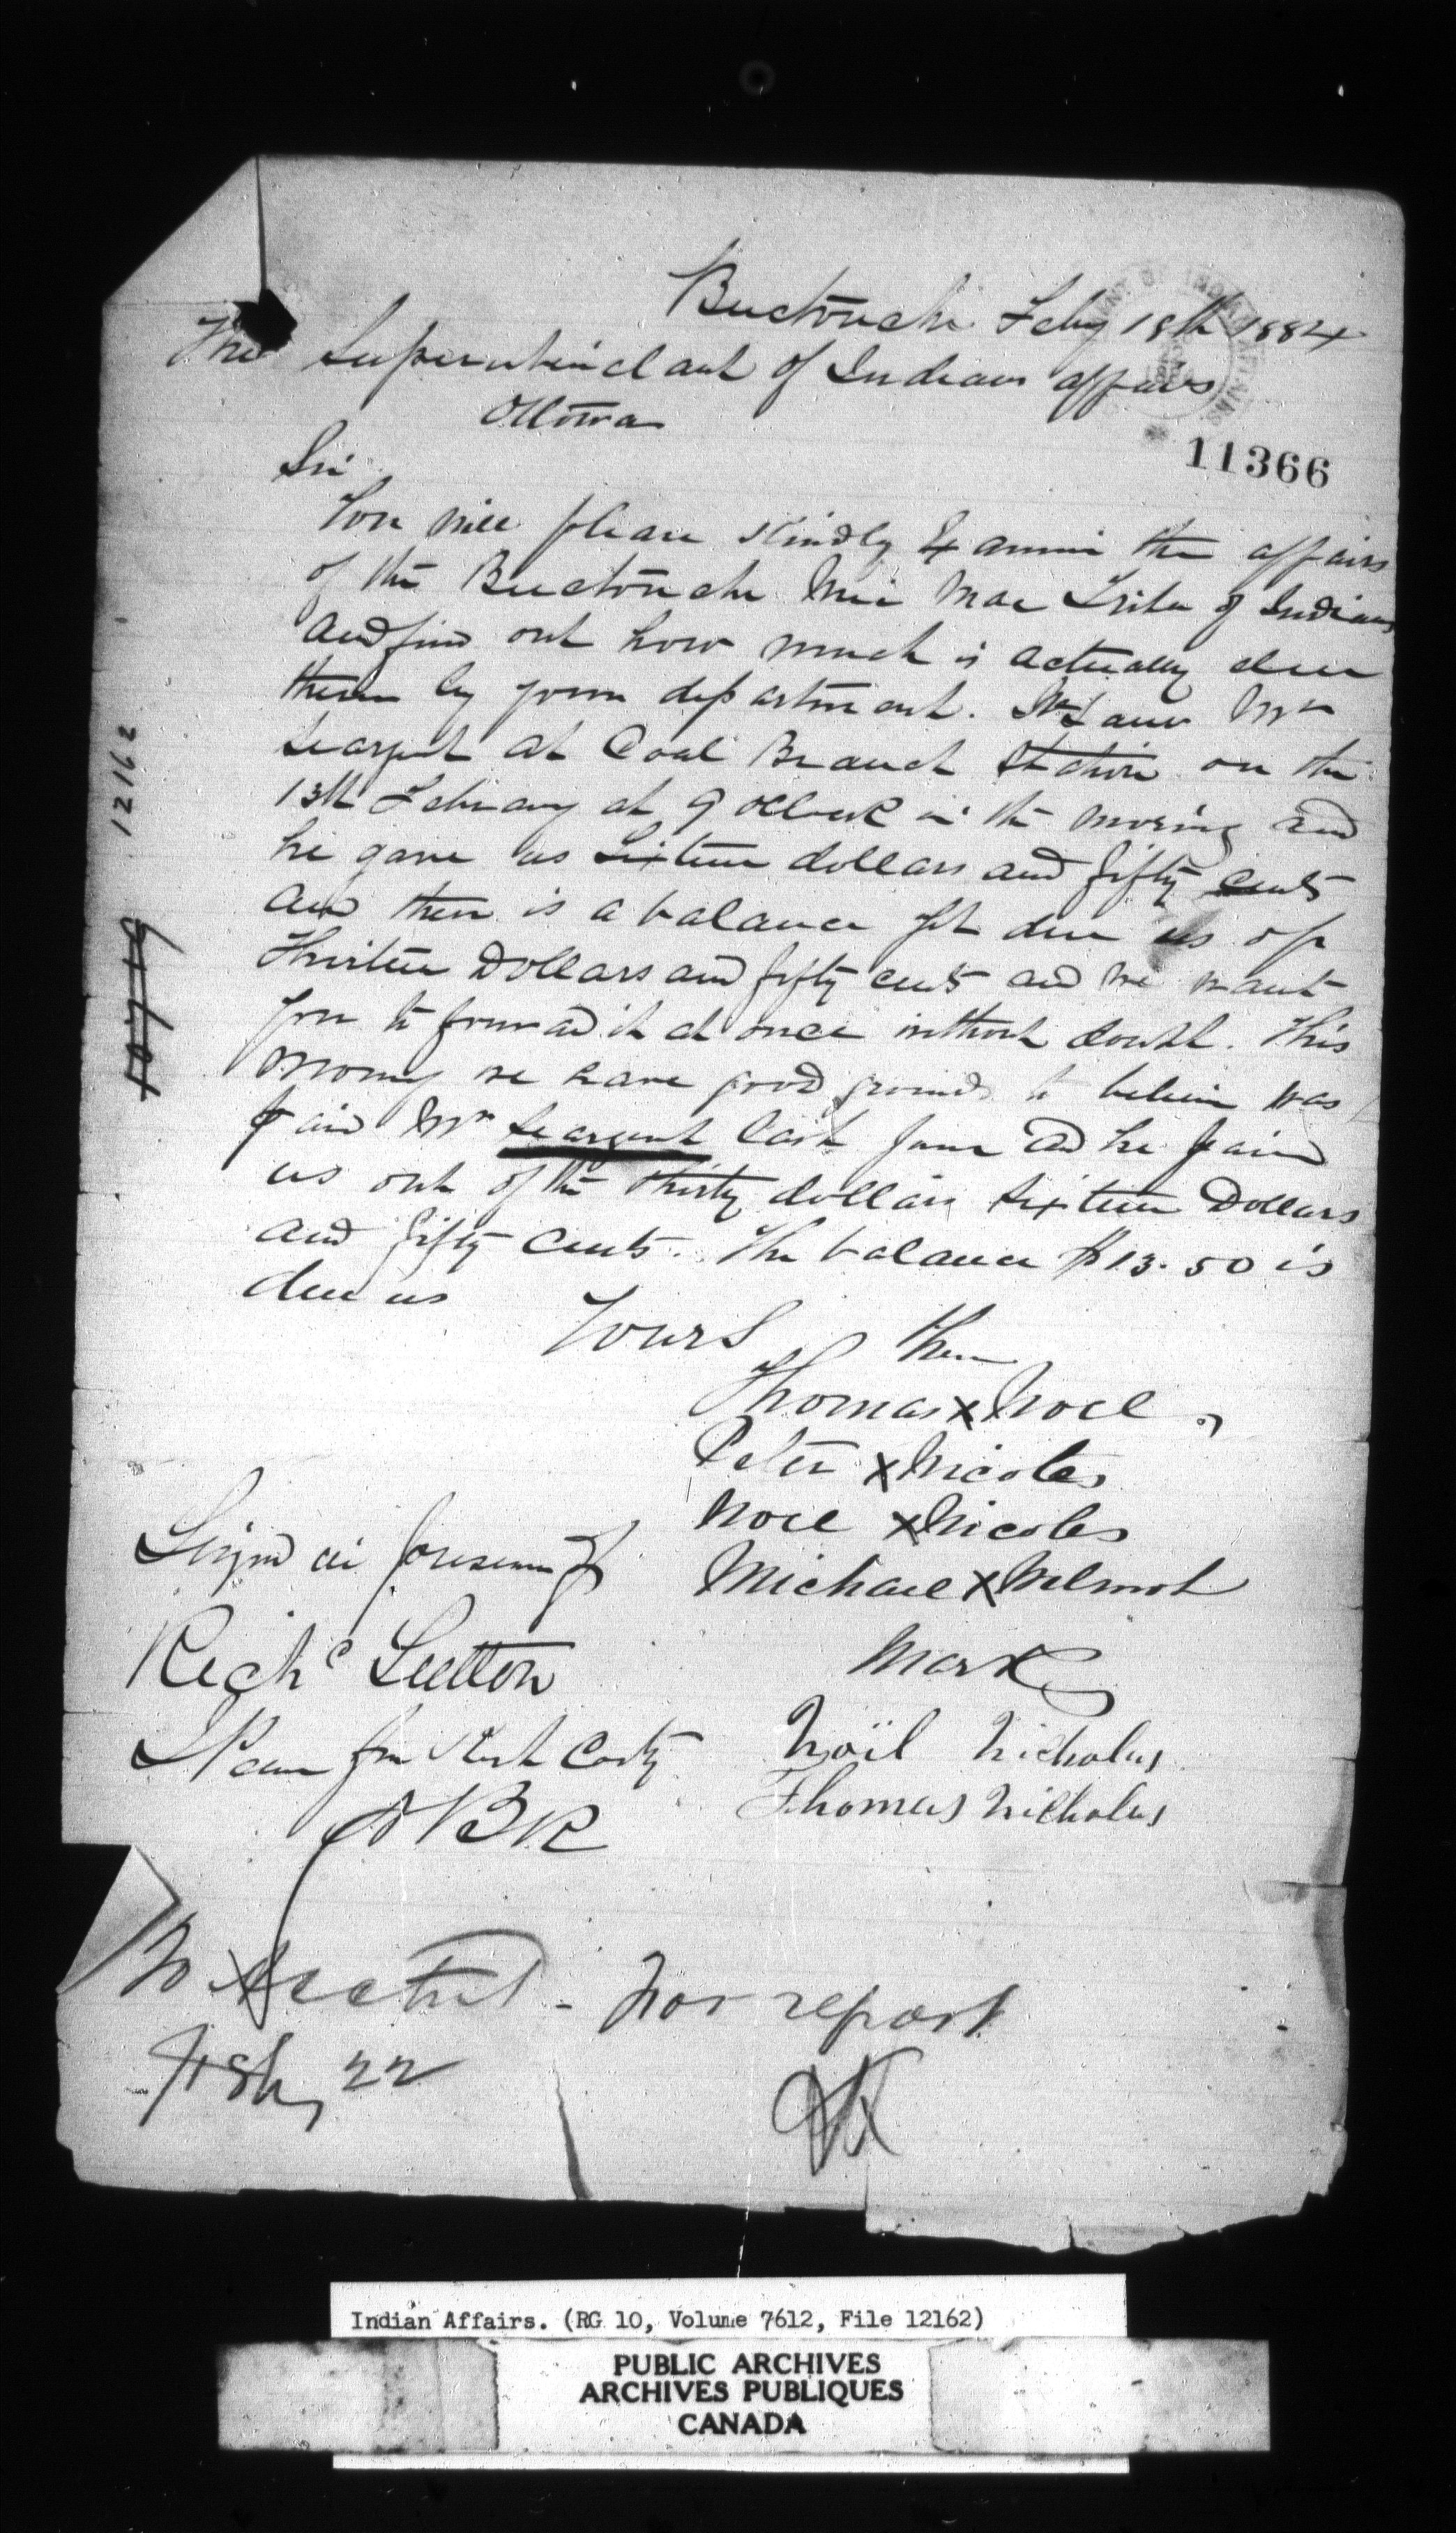 Buctouche Feby 18th 1884
The Superintendant of Indian affairs
Ottowa
11366
Sir
You will please kindly Examin the affairs
of the Buctouche Mic Mac Tribe of Indians
and find out how much is actually due
them by your department. We saw Mr
Seargent at Coal Branch Station on the
13th February at 9 oClock in the morning and
he gave us Sixteen dollars and fifty cents
and there is a balance yet due us of
Thirteen Dollars and fifty cents and we want
you to forward it at once without doubt. This
money we have good grounds to believe was
paid Mr Seargent last June and he paid
us out of the thirty dollars Sixteen Dollars
and fifty cents. The balance $13.50 is
due us
Yours
their
Thomas x Noel
Peter x Nicolas
Noel x Nicolas
Michael x Wilmot
Marks
Signd in presence of
Richd Sutton
for Kent Conty
Noïl Nicholus
Thomas Nicholus
For report
Feby 22
12162
Indian Affairs. (RG 10, Volume 7612, File 12162)
PUBLIC ARCHIVES
ARCHIVES PUBLIQUES
CANADA